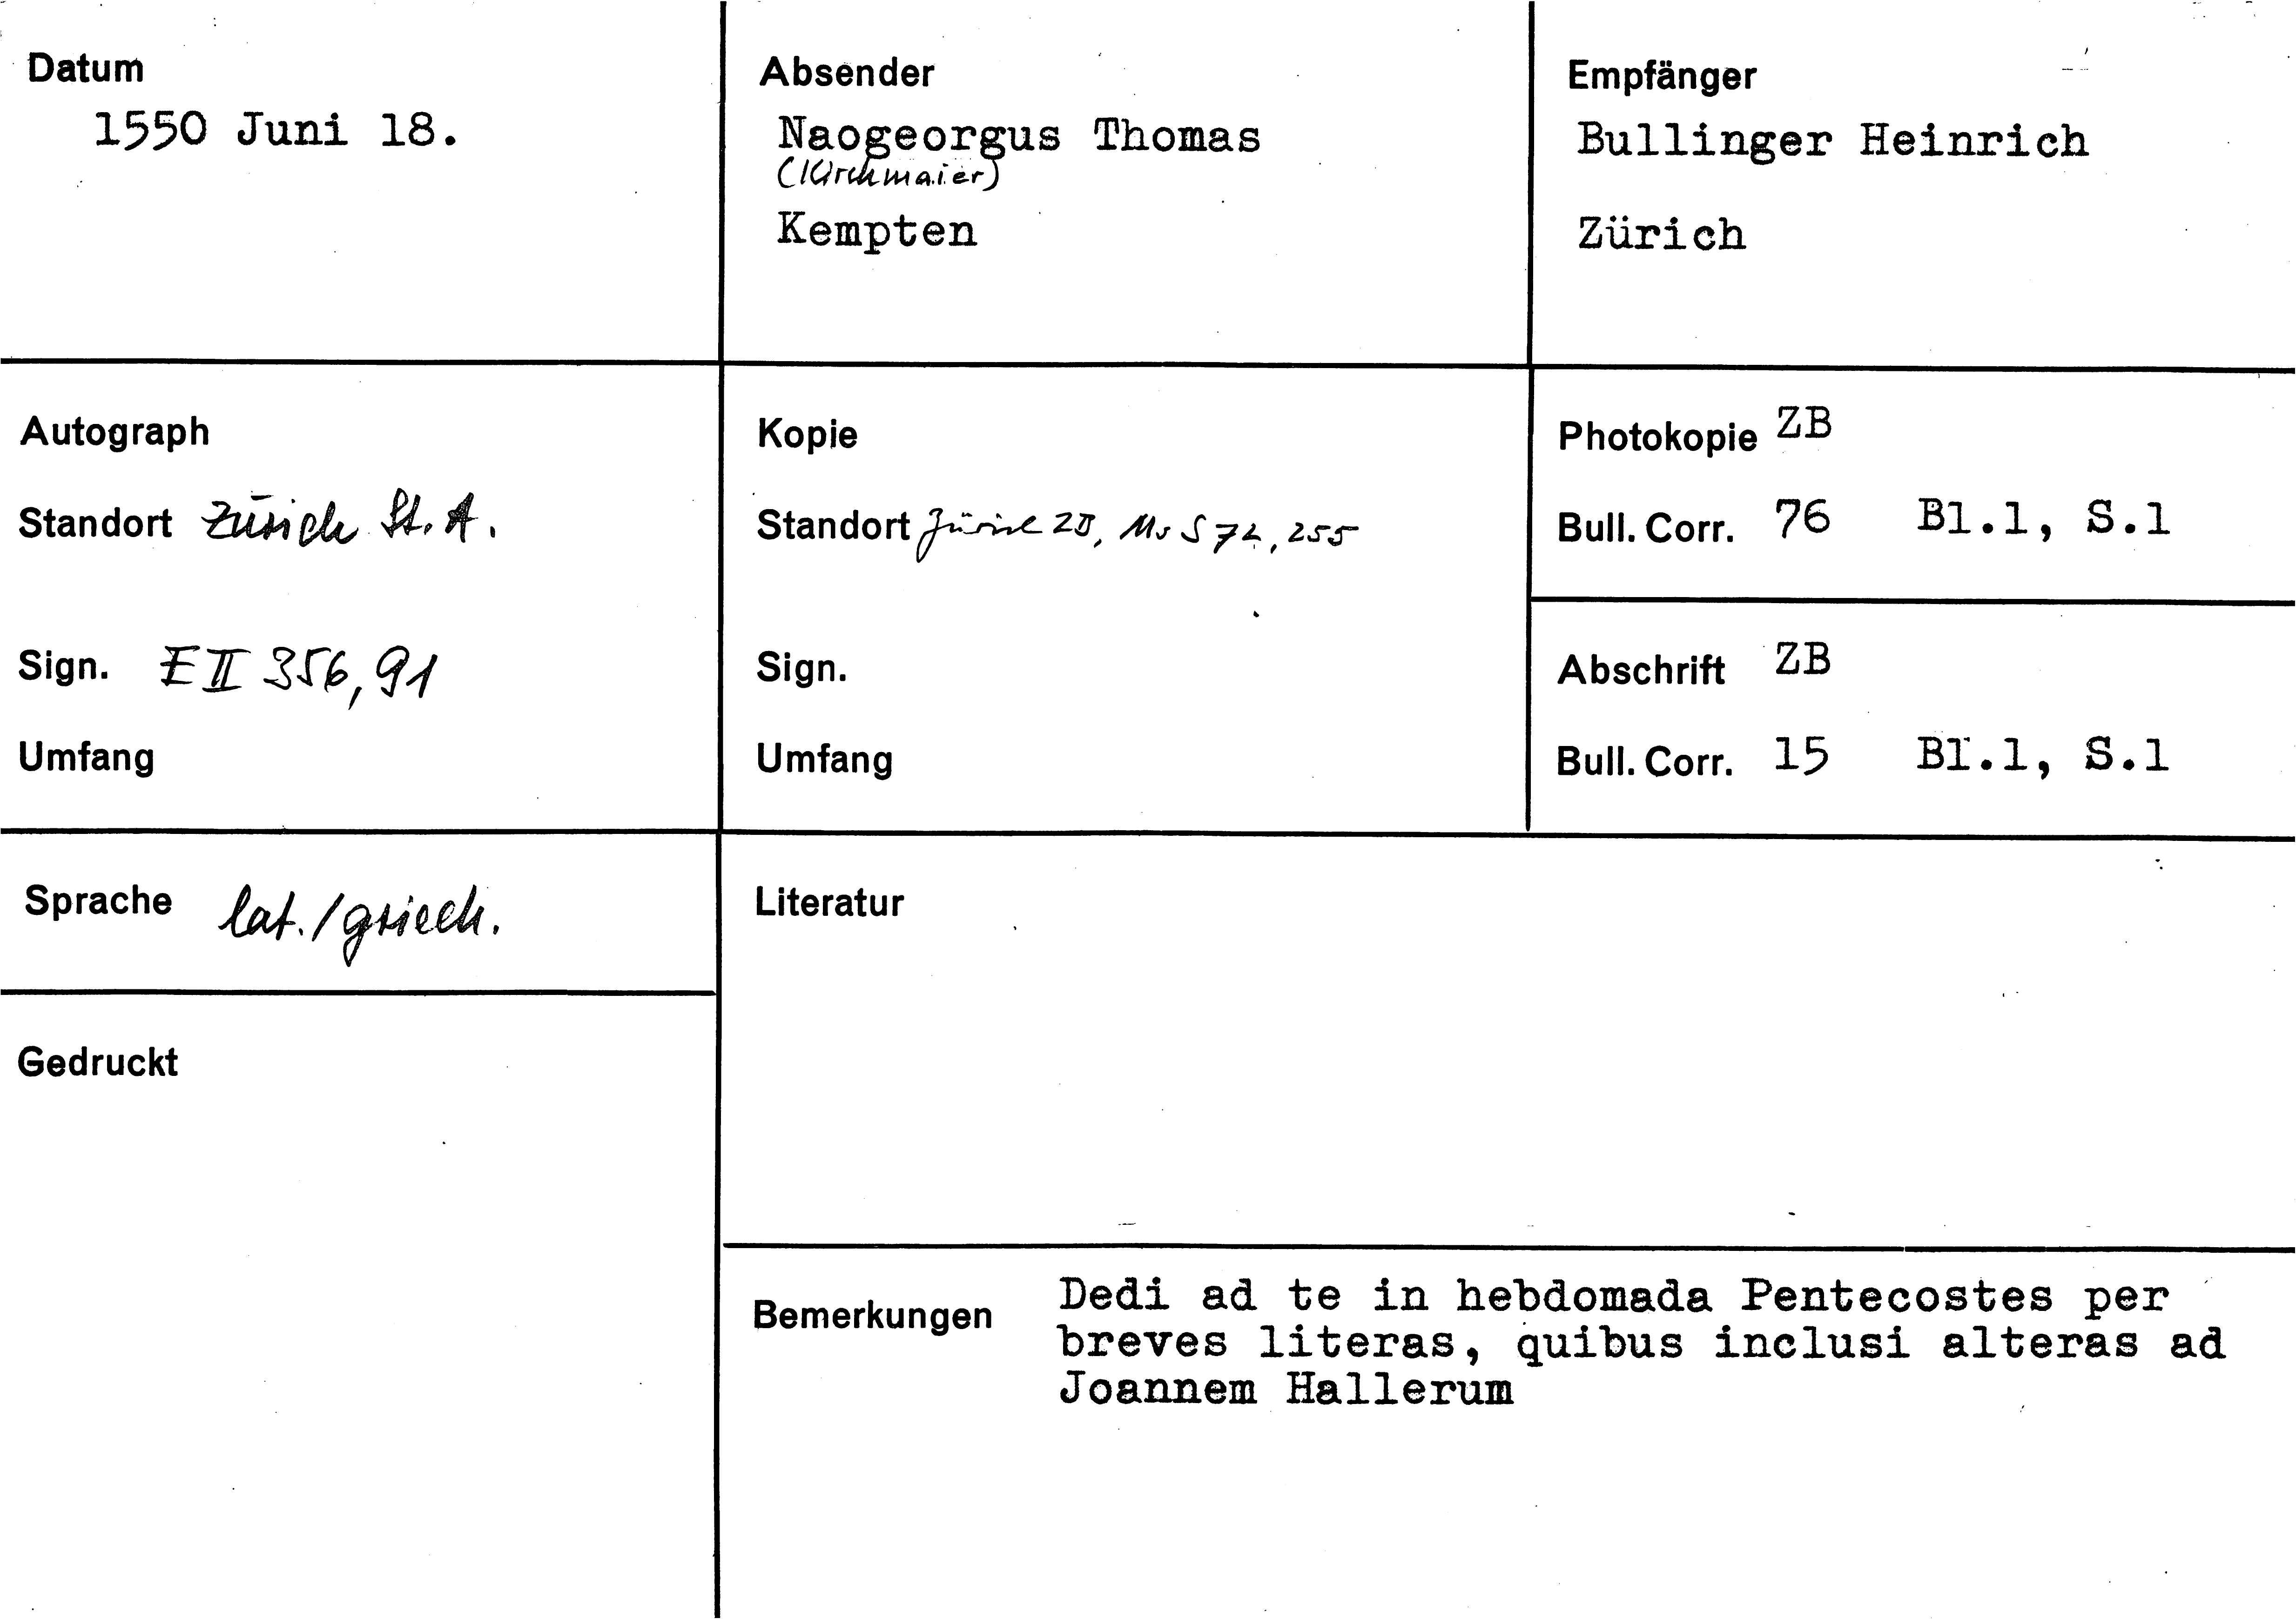 Datum
1550 Juni 18.
Absender
Naogeorgus Thomas
(Kirchmaier)
Kempten
Empfänger
Bullinger Heinrich
Zürich
Autograph
Standort Zürich St. A.
Sign. E II 356, 91
Umfang
Kopie
Standort Zürich ZB, Ms S 72, 255
Sign.
Umfang
Photokopie ZB
Bull. Corr. 76 Bl.1, S.1
Abschrift ZB
Bull. Corr. 15 Bl.1, S.1
Sprache lat. / griech.
Gedruckt
Literatur
Bemerkungen Dedi ad te in hebdomada Pentecostes per
breves literas, quibus inclusi alteras ad
Joannem Hallerum